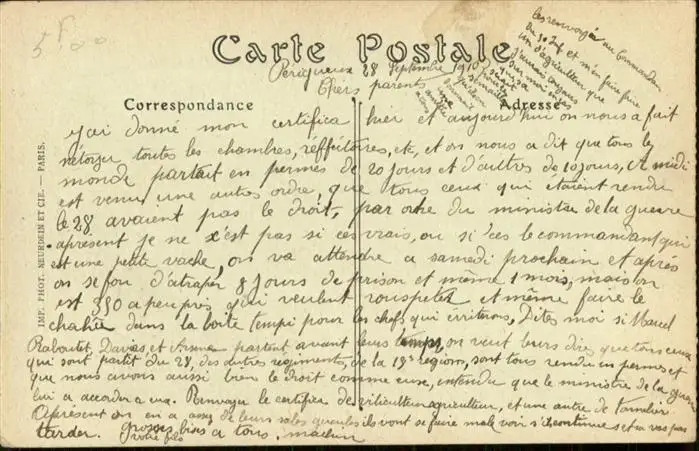 Carte Postale
Périgueux 28 Septembre 1910
Chers parents
Correspondance
Adresse
j'ai donné mon certifica hier et aujourd'hui on nous a fait
nétoyer toutes les chambres, réffectoires, etc, et on nous a dit que tous le
monde partait en permes de 20 jours et d'autres de 10 jours, A midi
est venu une autres ordre, que tous ceux qui étaient rendu
le 28 avaient pas le droit, par ordre du ministre de la guerre
apresent je ne s'est pas si ces vrais, ou si ces le commandant qui
est une petite vache, on va attendre a samedi prochain et après
on se fou d'atraper 8 jours de prison et même 1 mois, mais on
est 350 a peu près qui veulent rouspeter et même faire le
chahu dans la boîte tempi pour les chefs qui érriterons, Dites moi si Marcel
Raboutet, Davias et partent avant leurs temps, on veut leurs dires que tous ceux
qui sont partit du 28, des autres regiments, de la 18e region, sont tous rendu en permes et
que nous avons aussi bien le droit comme euse, entendu que le ministre de la guerre
lui a accorder a eux. Renvoyer le certifica de viticulteur agriculteur, et une autre de
Apresent on en a assez de leurs sales gueules ils vont se faire male voir s'il continue set a va pas
tarder. grosses bises a tous.
votre fils
les renvoyer au Commandan
du 50 Inf et m'en faire faire
un d'agriculteur que
j'aurai toujours
sur moi
IMP. PHOT. NEURDEIN ET CIE. — PARIS.